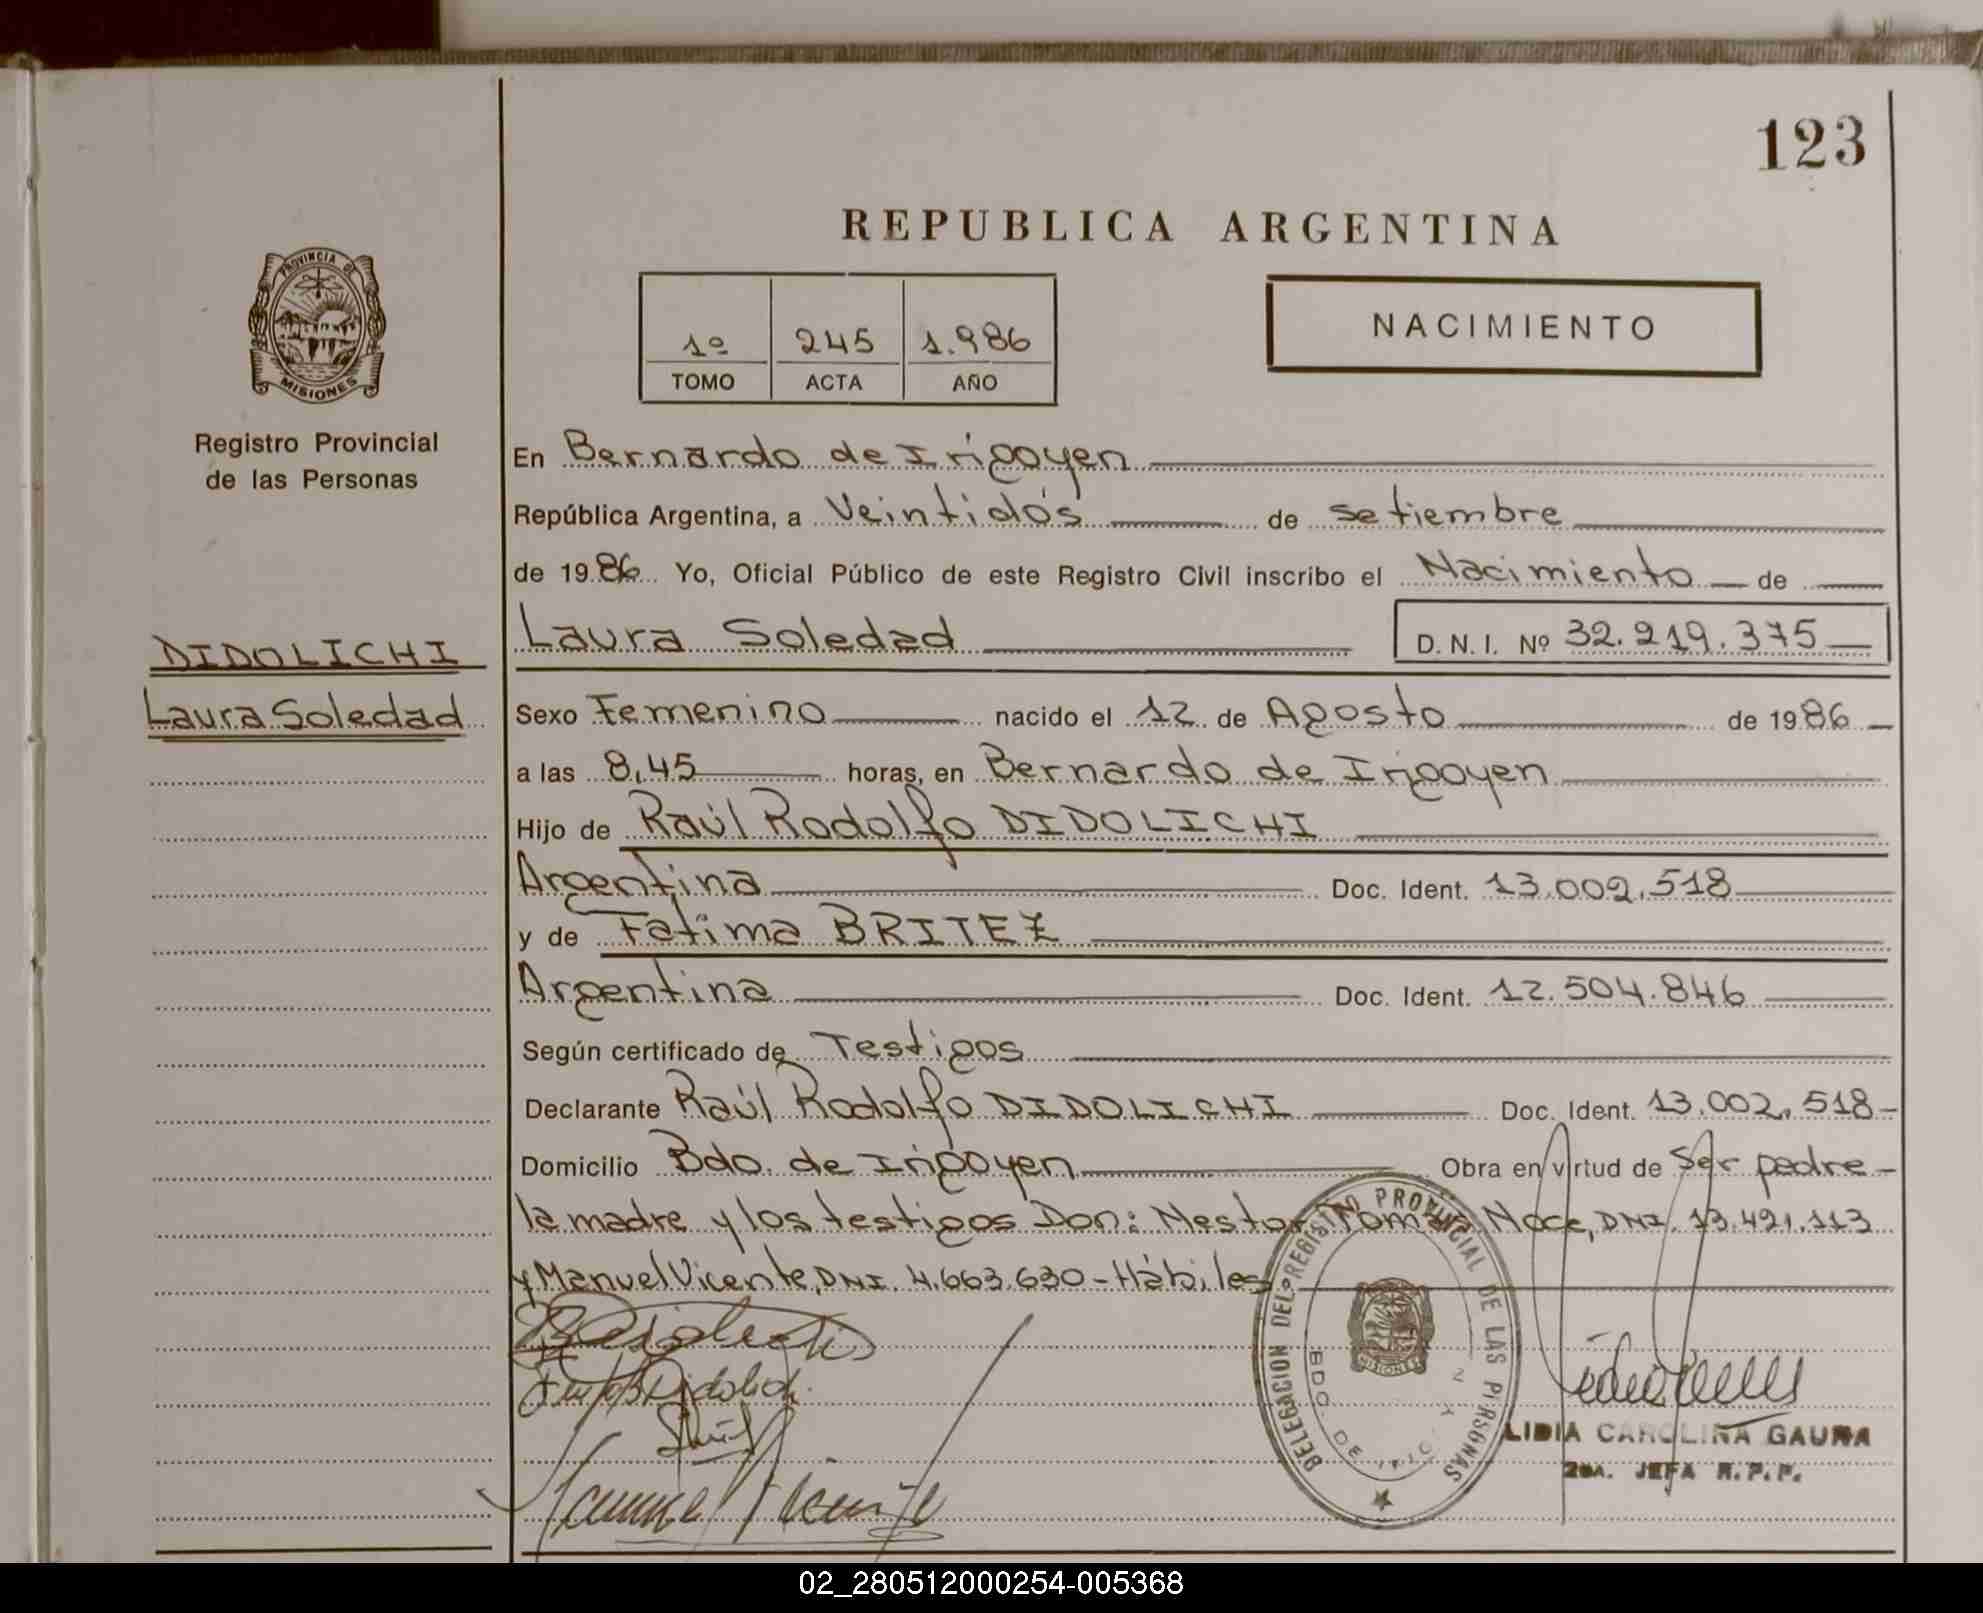 123
REPUBLICA ARGENTINA
PROVINCIA DE
MISIONES
Registro Provincial
de las Personas
1º 245 1.986
TOMO ACTA AÑO
NACIMIENTO
En Bernardo de Irigoyen
República Argentina, a Veintidós de setiembre
de 1986 Yo, Oficial Público de este Registro Civil inscribo el Nacimiento de
Laura Soledad D.N.I. Nº 32.219.375
DIDOLICHI
Laura Soledad
Sexo Femenino nacido el 12 de Agosto de 1986
a las 8,45 horas, en Bernardo de Irigoyen
Hijo de Raúl Rodolfo DIDOLICHI
Argentina Doc. Ident. 13.002.518
y de Fatima BRITEZ
Argentina Doc. Ident. 12.504.846
Según certificado de Testigos
Declarante Raúl Rodolfo DIDOLICHI Doc. Ident. 13.002.518
Domicilio Bdo. de Irigoyen Obra en virtud de Ser padre
la madre y los testigos Don: Nestor Noce, DNI. 13.491.113
y Manuel Vicente, DNI. 4.663.630 - Hábiles
DELEGACION DEL REGISTRO PROVINCIAL DE LAS PERSONAS
BDO. DE
MISIONES
LIDIA CAROLINA GAUNA
2DA. JEFA R.P.P.
02_280512000254-005368